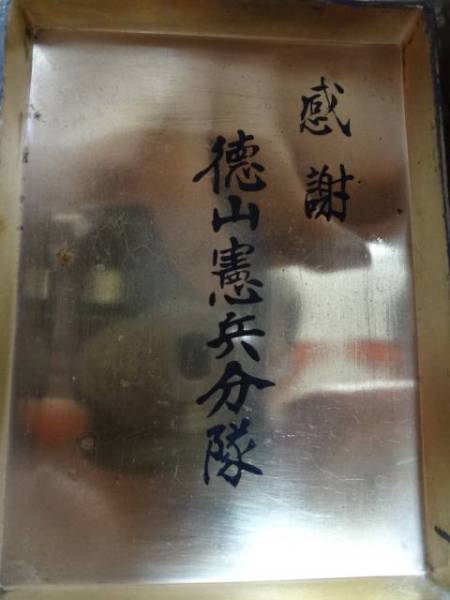 感謝
徳山憲兵分隊